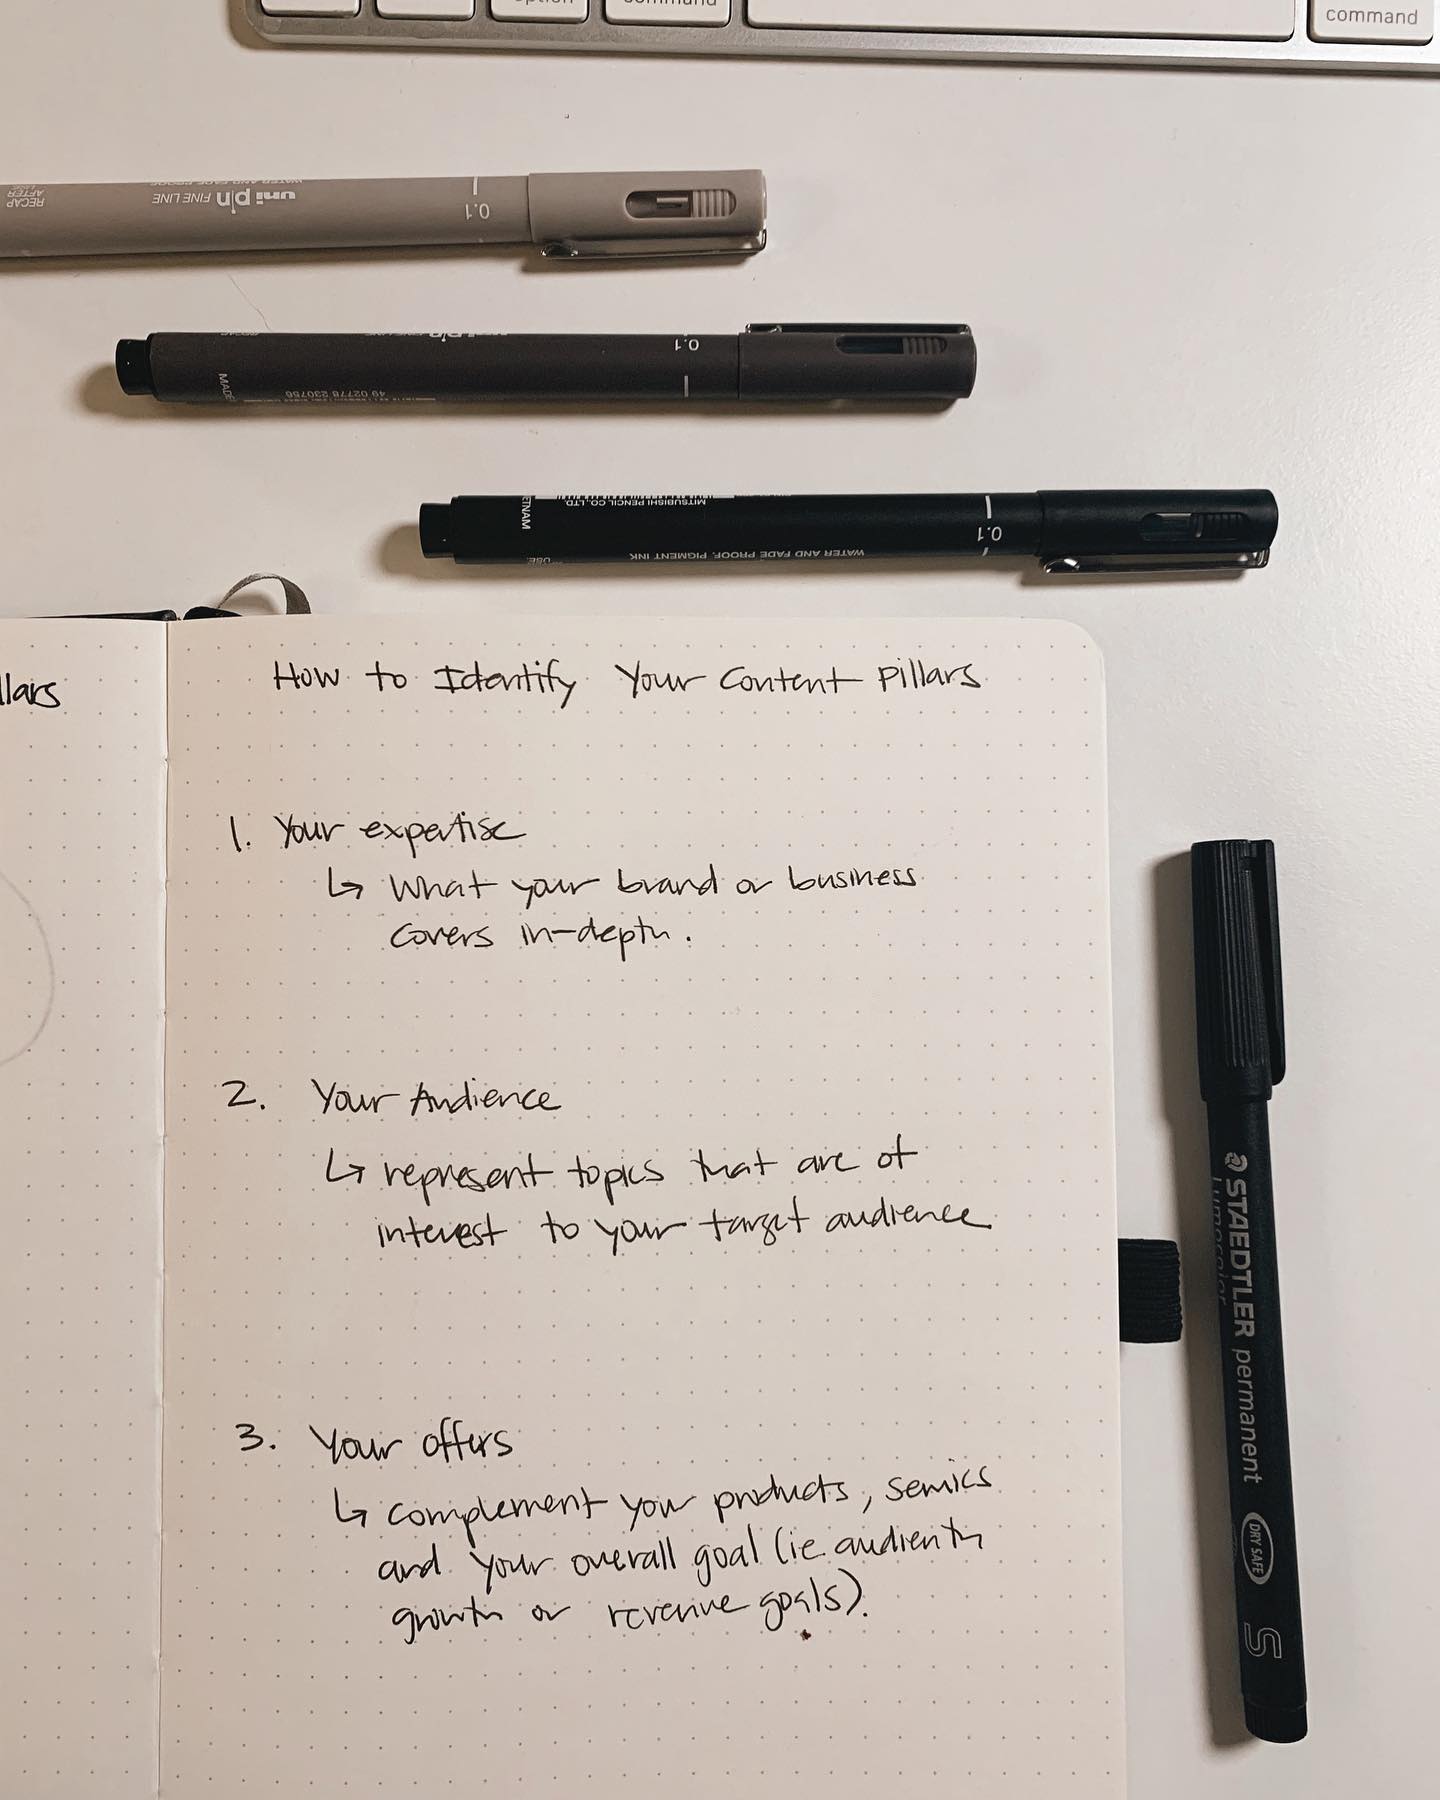 command
command
RECAP
AFTER
uni pin FINE LINE
WATER AND FADE PROOF
0.1
0.1
49 02778 230756
MADE
MITSUBISHI PENCIL CO., LTD.
0.1
WATER AND FADE PROOF, PIGMENT INK
USE.
llars
How to Identify Your Content Pillars
1. Your expertise
↳ What your brand or business
covers in-depth.
2. Your Audience
↳ represent topics that are of
interest to your target audience
3. Your offers
↳ complement your products, services
and your overall goal (ie. audienth
growth or revenue goals).
STAEDTLER permanent
Lumocolor
DRY SAFE
S